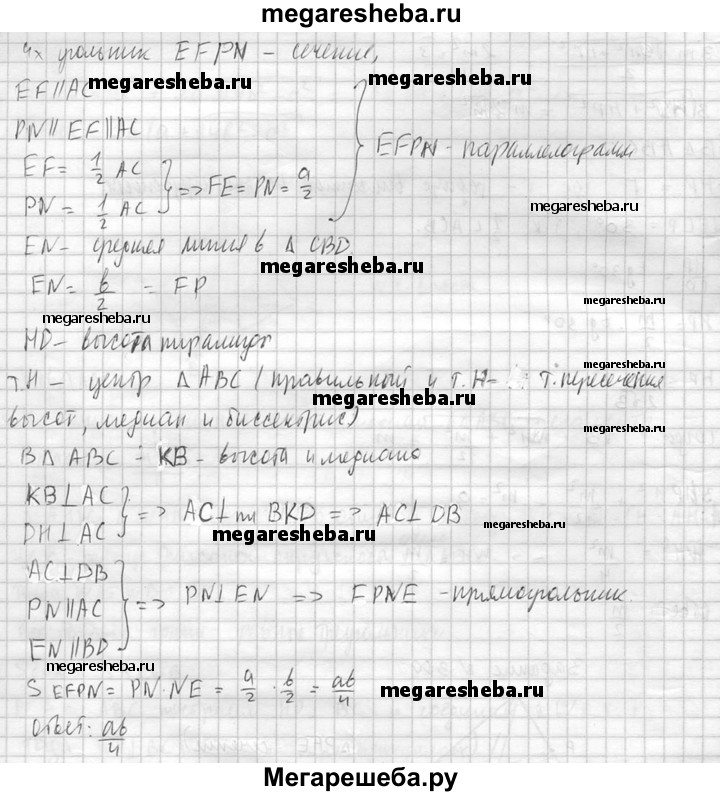 megaresheba.ru
4х угольник EFPN - сечение,
EF||AC
megaresheba.ru
megaresheba.ru
PN || EF || AC
EFPN - параллелограмм
EF = 1/2 AC
PN = 1/2 AC
=> FE = PN = a/2
megaresheba.ru
EN - средняя линия в Δ CBD
megaresheba.ru
EN = b/2 = FP
megaresheba.ru
megaresheba.ru
HD - высота пирамиды
megaresheba.ru
т.H - центр Δ ABC (правильный и т. H - т. пересечения
megaresheba.ru
высот, медиан и биссектрис)
В Δ ABC : KB - высота и медиана
KB ⊥ AC
DH ⊥ AC
=> AC ⊥ пл BKD => AC ⊥ DB
megaresheba.ru
megaresheba.ru
AC ⊥ DB
PN || AC
EN || BD
=> PN ⊥ EN => FPNE - прямоугольник.
megaresheba.ru
S EFPN = PN · NE = a/2 · b/2 = ab/4
megaresheba.ru
Ответ: ab/4
Мегарешеба.ру